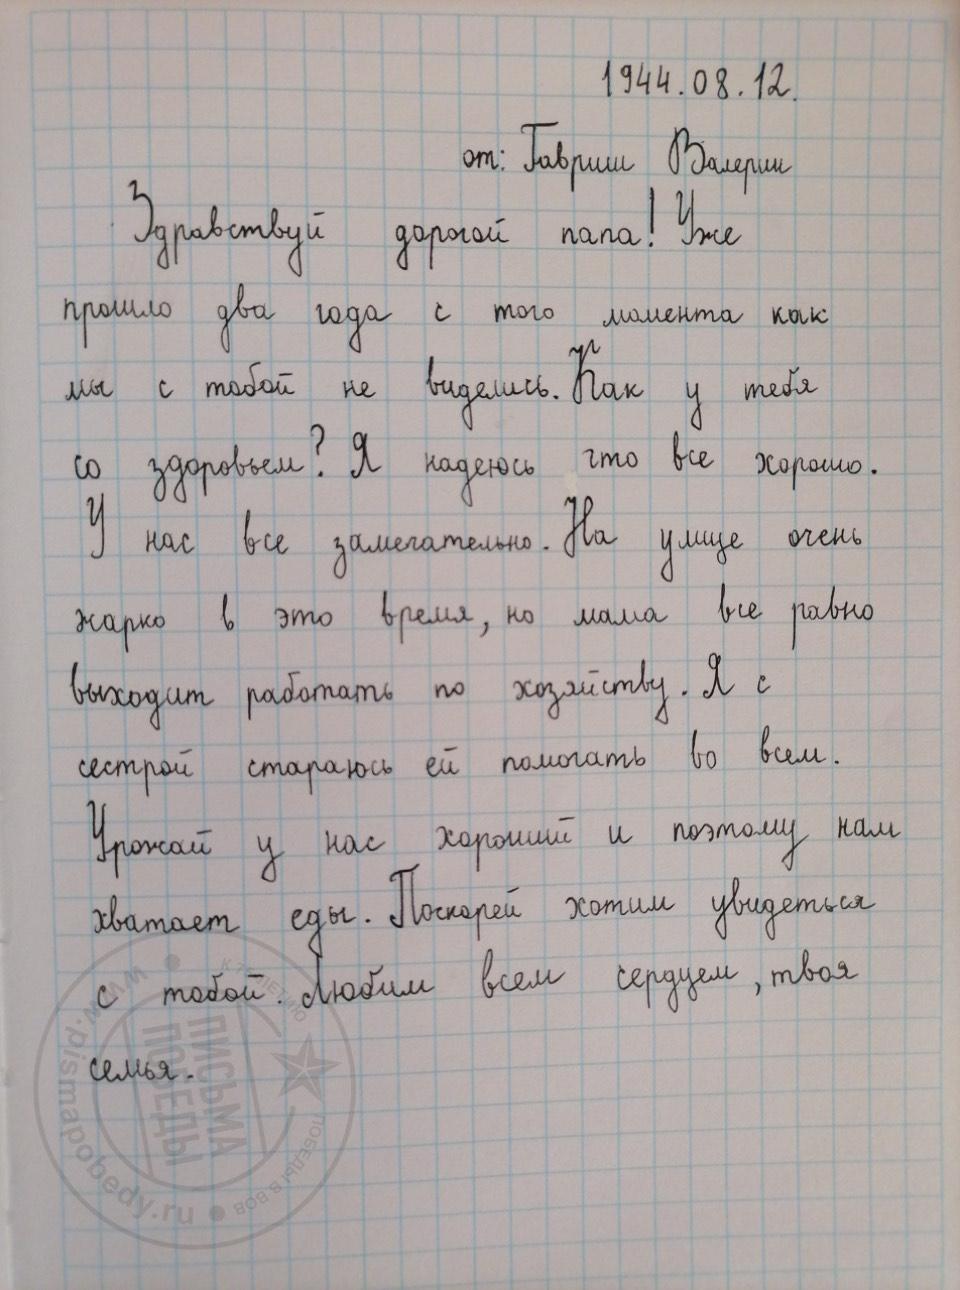 1944.08.12.
от: Гавриш Валерии
Здравствуй дорогой папа! Уже
прошло два года с того момента как
мы с тобой не виделись. Как у тебя
со здоровьем? Я надеюсь что все хорошо.
У нас все замечательно. На улице очень
жарко в это время, но мама все равно
выходит работать по хозяйству. Я с
сестрой стараюсь ей помогать во всем.
Урожай у нас хороший и поэтому нам
хватает еды. Поскорей хотим увидеться
с тобой. Любим всем сердцем, твоя
семья.
ПИСЬМА
ПОБЕДЫ
www.pismapobedy.ru
ПОБЕДЫ В ВОВ